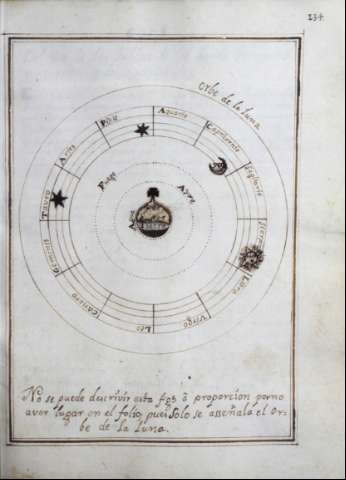 134.
Orbe de la Luna
Aquario
Capricornio
Sagitario
Libra
Virgo
Leo
Cancro
Geminis
Tauro
Aries
Fuego
Ayre
No se puede descrivir esta fig̃ ã proporcion por no
aver lugar en el folio, pues Solo se asseñala el Or-
be de la Luna.